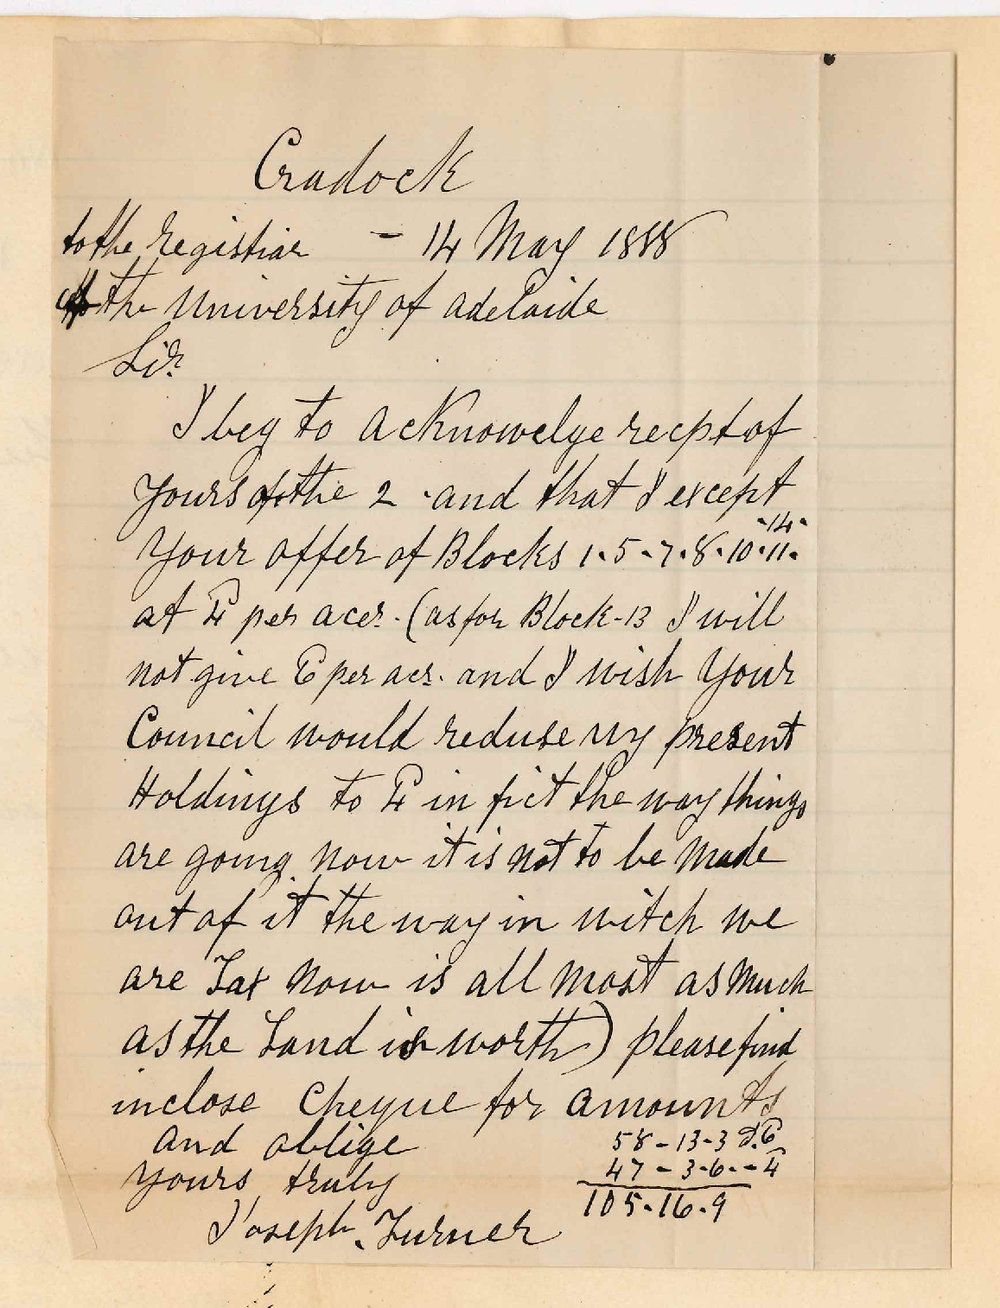 Cradock
to the Registrar - 14 May 1888
of the University of Adelaide
Sir
I beg to acknowelge recpt of
yours of the 2 and that I except
Your offer of Blocks 1.5.7.8.10.11.
.14.
at 4 per acer. (as for Block-13 I will
not give 6 per acr. and I wish Your
Council would reduse my present
Holdings to 4 in fict the way things
are going now it is not to be made
out of it the way in witch we
are Tax now is all most as much
as the Land is worth) please find
inclose Cheque for amounts
and oblige 58-13-3 D. 6
Yours truly 47-3-6--4
105.16.9
Joseph. Turner